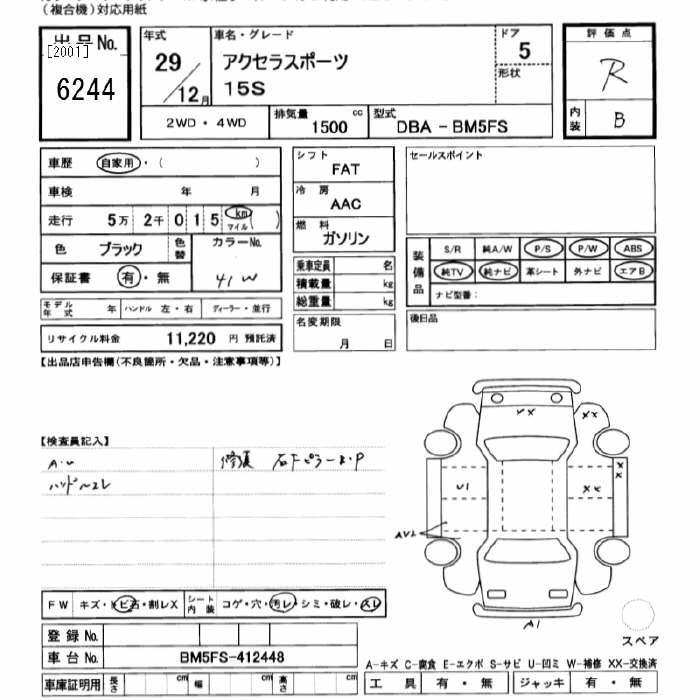 （複合機）対応用紙
出品No.
[2001]
6244
年式
29／12月
車名・グレード
アクセラスポーツ
15S
ドア
5
形状
2WD・4WD
排気量
1500 cc
型式
DBA－BM5FS
評価点
R
内装
B
車歴 自家用・（ ）
車検 年 月
走行 5万 2千 0 1 5 km マイル （ ）
色 ブラック 色替 カラーNo.
41W
保証書 有・無
モデル年式 年 ハンドル 左・右 ディーラー・並行
リサイクル料金 11,220 円 預託済
シフト
FAT
冷房
AAC
燃料
ガソリン
乗車定員 名
積載量 kg
総重量 kg
名変期限
月 日
セールスポイント
装備品
S/R 純A/W P/S P/W ABS
純TV 純ナビ 革シート 外ナビ エアB
ナビ型番：
後日品
【出品店申告欄（不良箇所・欠品・注意事項等）】
【検査員記入】
A・U
修復 右Fピラーx・P
ハンドルスレ
XX
XX
X
X
U1
XX
AU2
A1
FW キズ・トビ石・割レX
シート内装 コゲ・穴・汚レ・シミ・破レ・スレ
登録No.
車台No. BM5FS-412448
車庫証明用 長さ cm 幅 cm 高さ cm
スペア
A-キズ C-腐食 E-エクボ S-サビ U-凹ミ W-補修 XX-交換済
工具 有・無 ジャッキ 有・無